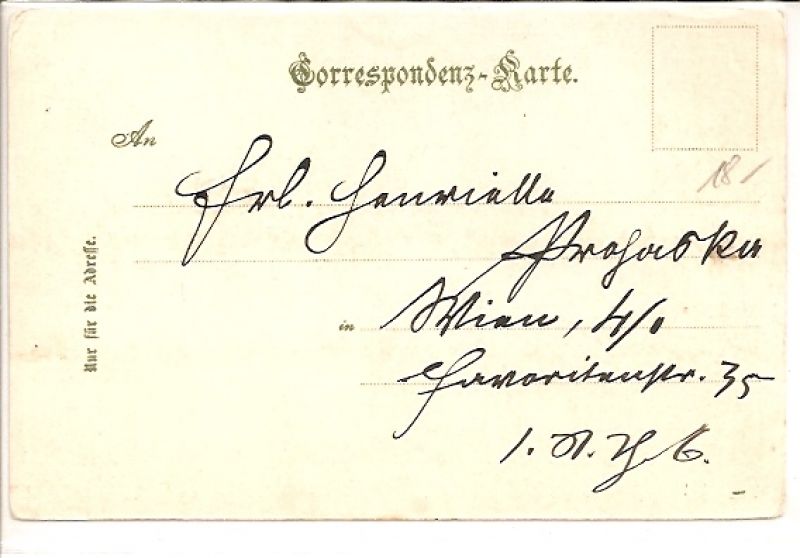 Correspondenz-Karte.
An
18-
Frl. Henriette
Prohaska
in Wien, 4/1
Favoritenstr. 35
1. St. Th. 6.
Nur für die Adresse.